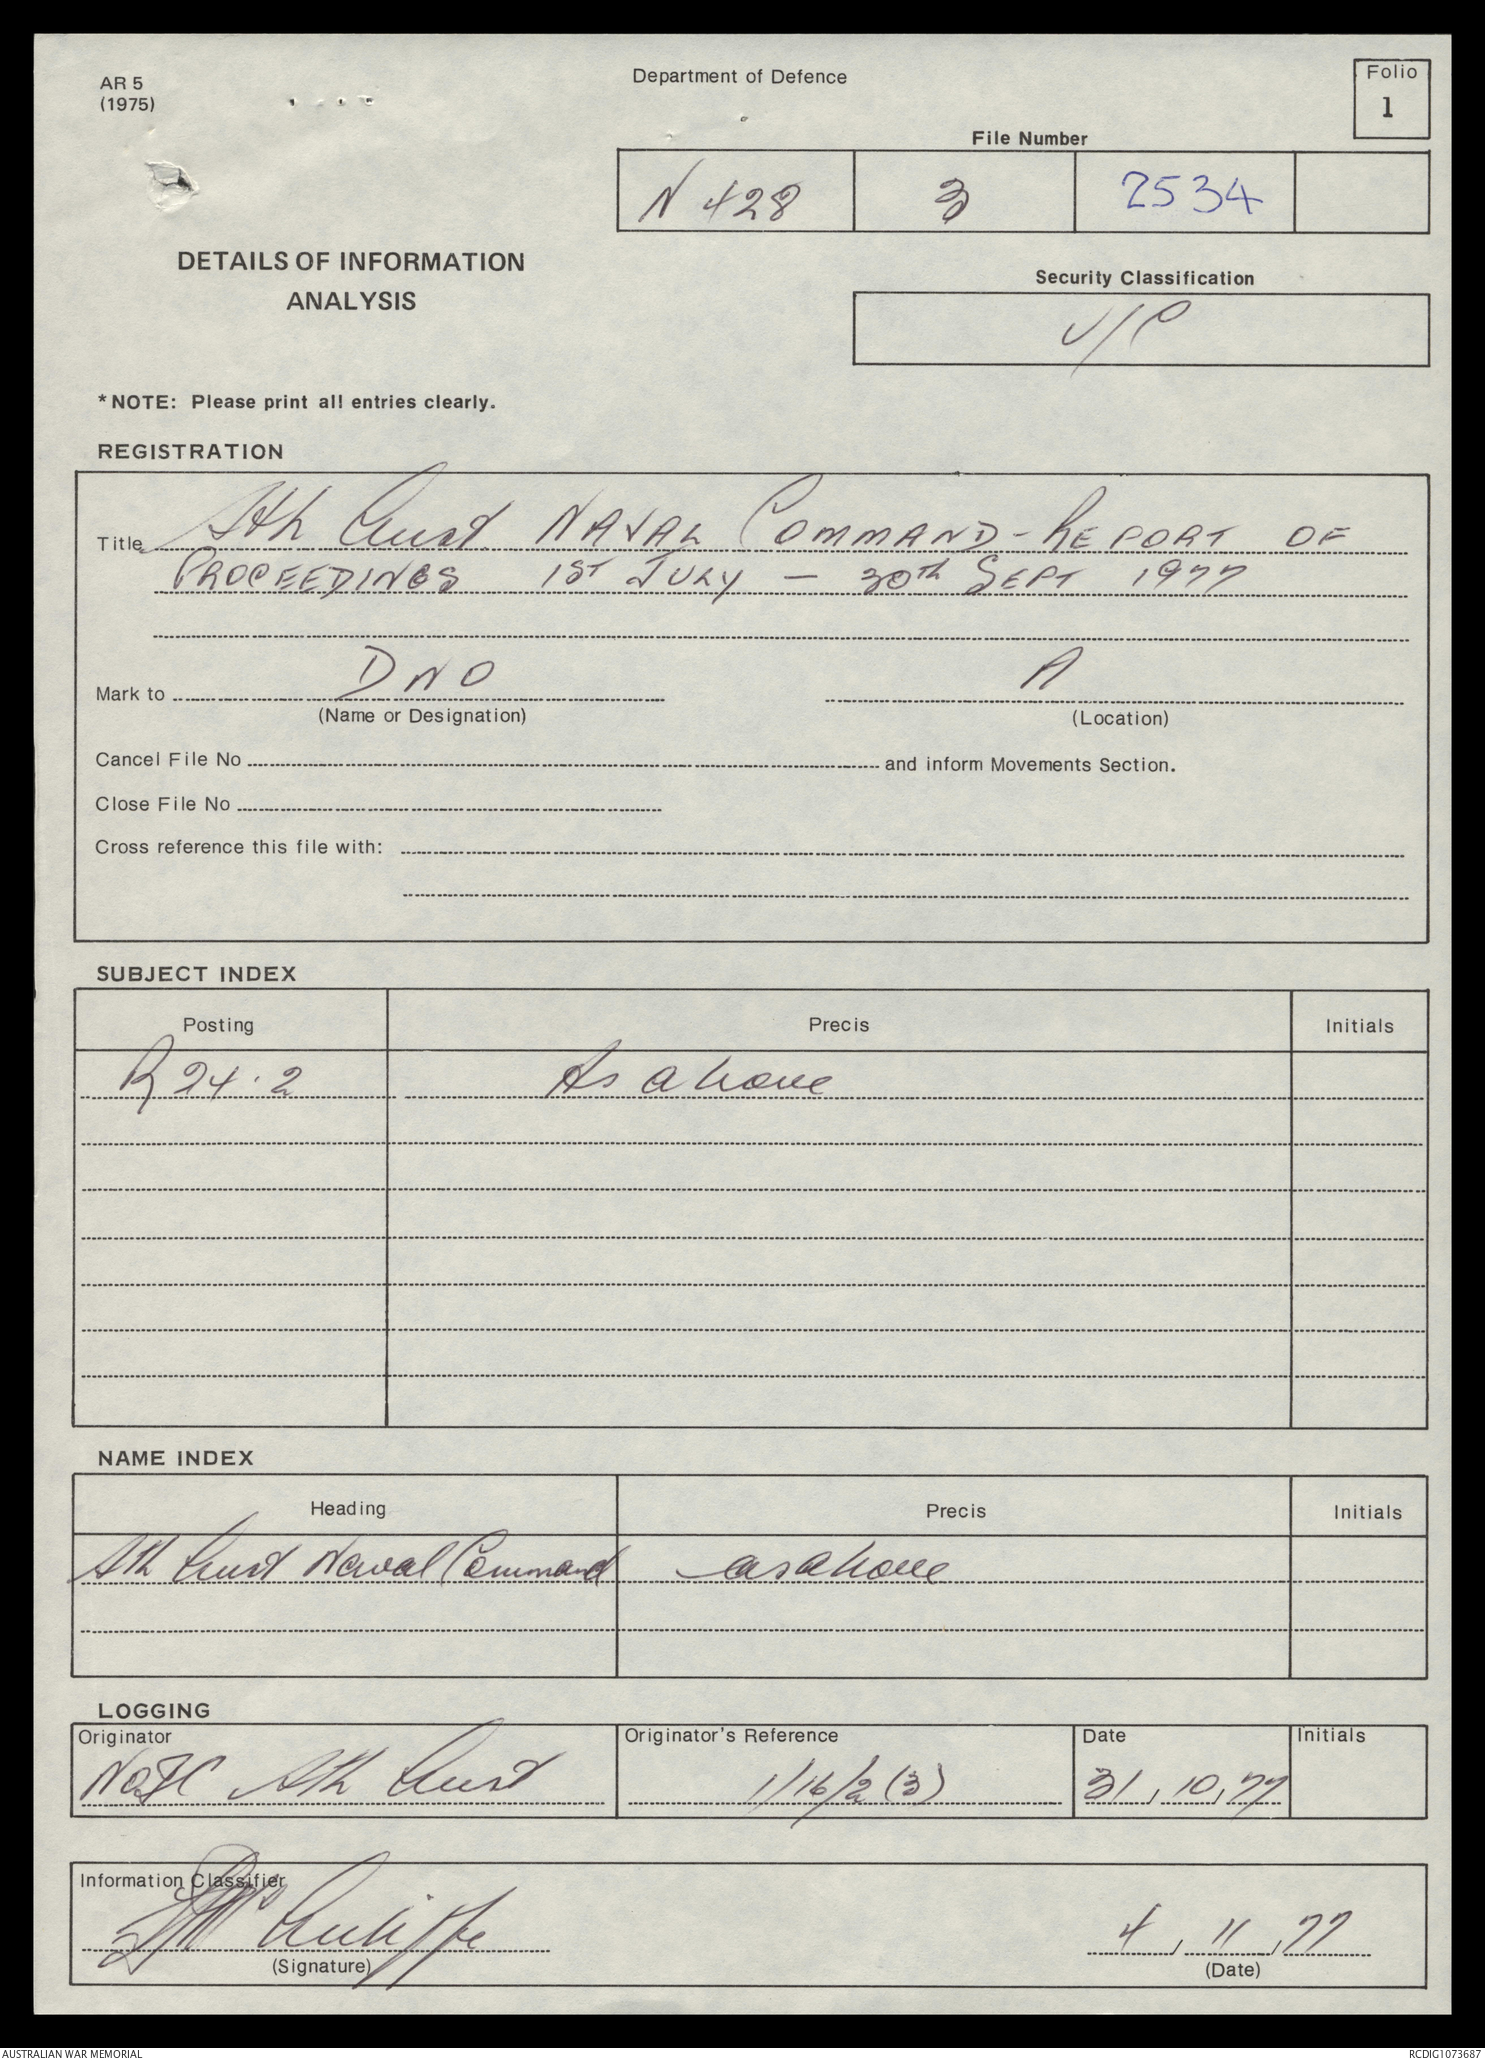 AR 5
(1975)
Department of Defence
Folio
1
File Number
N 428 3 2534
DETAILS OF INFORMATION
ANALYSIS
Security Classification
U/C
*NOTE: Please print all entries clearly.
REGISTRATION
Title Sth Aust NAVAL COMMAND - REPORT OF
PROCEEDINGS 1ST JULY - 30th SEPT 1977
Mark to DNO A
(Name or Designation) (Location)
Cancel File No and inform Movements Section.
Close File No
Cross reference this file with:
SUBJECT INDEX
Posting Precis Initials
R 24.2 As above
NAME INDEX
Heading Precis Initials
Sth Aust Naval Command as above
LOGGING
Originator Originator's Reference Date Initials
Sth Aust 1/16/2 (3) 31, 10, 77
Information Classifier
4, 11, 77
(Signature) (Date)
AUSTRALIAN WAR MEMORIAL RCDIG1073687